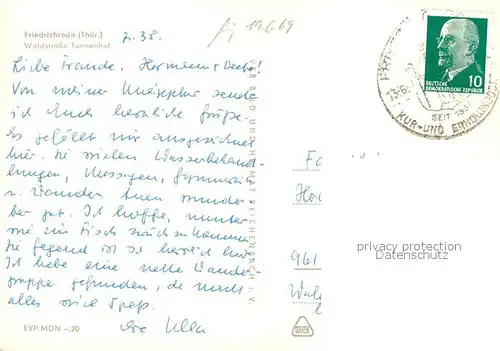 Friedrichroda (Thür.)
Waldstraße Tannenhof
z. 38.
19.6.69
Liebe Traude, Hermann + Berte!
Von meiner Kneippkur sende
ich Euch herzliche Grüße.
Es gefällt mir ausgezeichnet
hier. Die vielen Wasserbehand-
lungen, Massagen, Gymnastik
u. Wandern tun wunder-
bar gut. Ich hoffe, munter
wie ein Fisch zurückzukommen.
Die Gegend ist so herrlich hier.
Ich habe eine nette Wander-
gruppe gefunden, da macht
alles viel Spaß.
Eure Ulla
EVP MDN -,20
BILD UND HEIMAT REICHENBACH i. V.
10
DEUTSCHE
DEMOKRATISCHE REPUBLIK
SEIT
KUR- UND ERHOLUNGSORT
961
privacy protection
Datenschutz